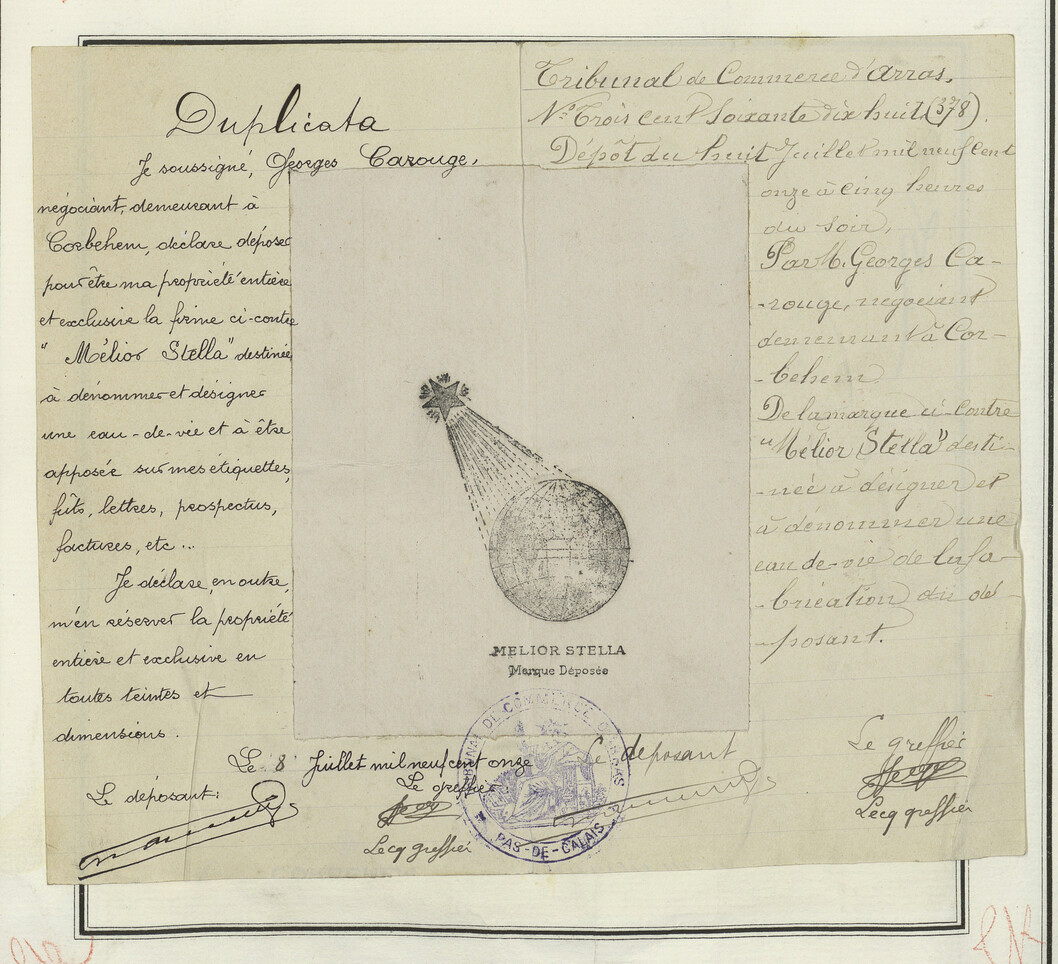 Duplicata
Je soussigné, Georges Carouge,
négociant, demeurant à
Corbehem, déclare déposer
pour être ma propriété entière
et exclusive la firme ci-contre
" Mélior Stella" destinée
à dénommer et désigner
une eau-de-vie et à être
apposée sur mes étiquettes,
fûts, lettres, prospectus,
factures, etc...
Je déclare, en outre,
m'en réserver la propriété
entière et exclusive en
toutes teintes et
dimensions.
Le 8 Juillet mil neuf cent onze
Le déposant:
Le greffier
Lecq greffier
Tribunal de Commerce d'Arras.
N° Trois cent soixante dix huit (378).
Dépôt du huit Juillet mil neuf cent
onze à cinq heures
du soir,
Par M. Georges Ca-
-rouge, négociant
demeurant à Cor-
-behem
De la marque ci-contre
"Mélior Stella" desti-
-née à désigner et
à dénommer une
eau de-vie de la fa-
-brication du dé-
-posant.
Le deposant
Le greffier
Lecq greffier
MELIOR STELLA
Marque Déposée
TRIBUNAL DE COMMERCE D'ARRAS
PAS-DE-CALAIS